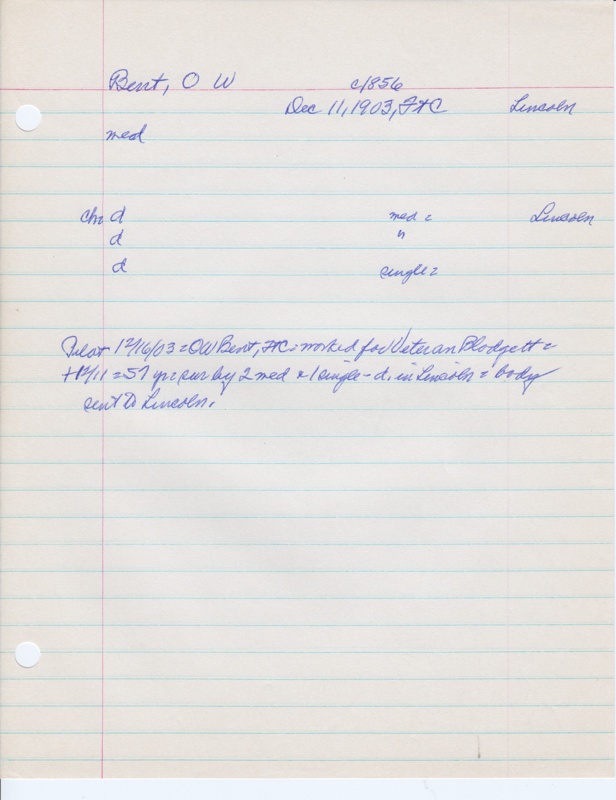 Bent, O W c1856
Dec 11, 1903, F+C Lincoln
med
ch: d med = Lincoln
d "
d single =
Pilot 12/16/03 = OW Bent, F+C = worked for Veteran Blodgett =
+12/11 = 57 yr = sur by 2 med + 1 single - d, in Lincoln = body
sent to Lincoln.